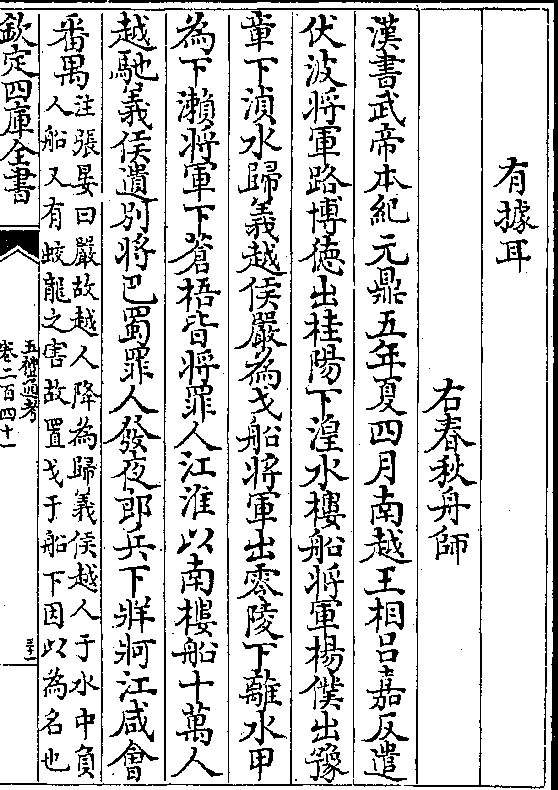 有據耳
右春秋舟師
漢書武帝本紀元鼎五年夏四月南越王相呂嘉反遣
伏波將軍路博德出桂陽下湟水樓船將軍楊僕出豫
章下湞水歸義越侯嚴為戈船將軍出零陵下離水甲
為下瀨將軍下蒼梧皆將罪人江淮以南樓船十萬人
越馳義侯遺別將巴蜀罪人發夜郎兵下牂牁江咸會
番禺注張晏曰嚴故越人降為歸義侯越人于水中負
人船又有蛟龍之害故置戈于船下因以為名也
欽定四庫全書
五禮通考
卷二百四十一